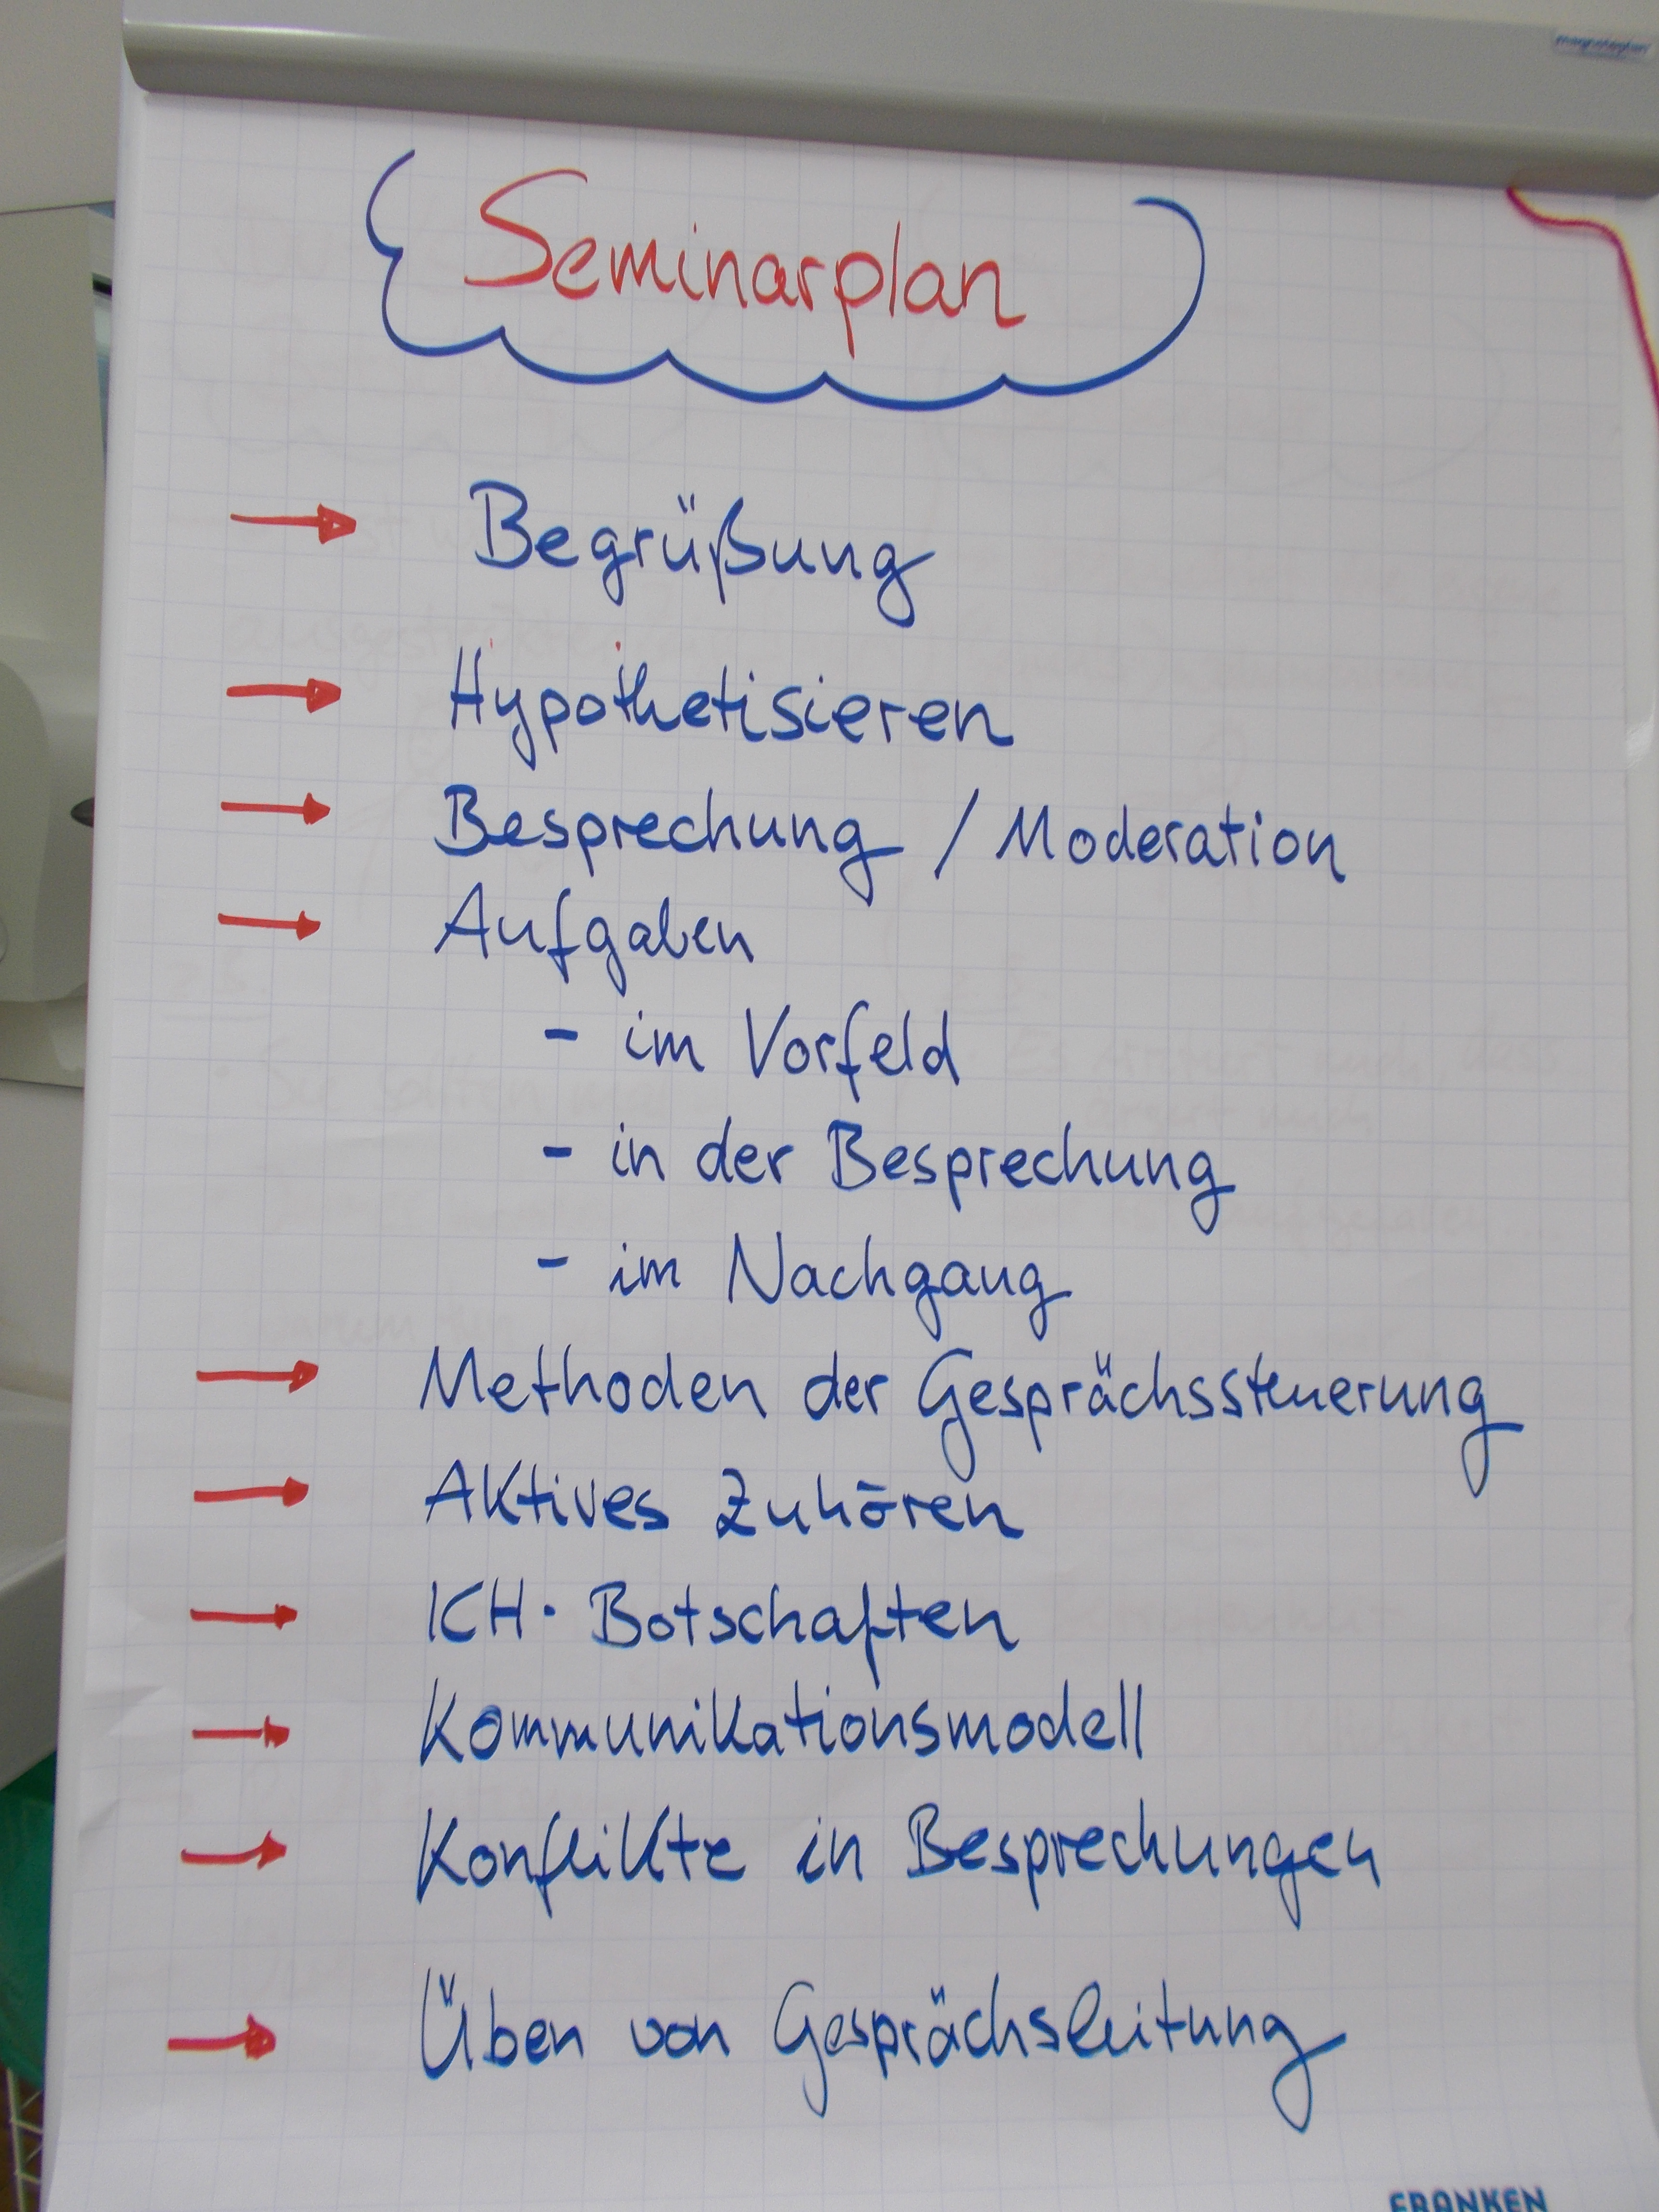 magnetoplan
Seminarplan
→ Begrüßung
→ Hypothetisieren
→ Besprechung / Moderation
→ Aufgaben
- im Vorfeld
- in der Besprechung
- im Nachgang
→ Methoden der Gesprächssteuerung
→ Aktives Zuhören
→ ICH-Botschaften
→ Kommunikationsmodell
→ Konflikte in Besprechungen
→ Üben von Gesprächsleitung
FRANKEN